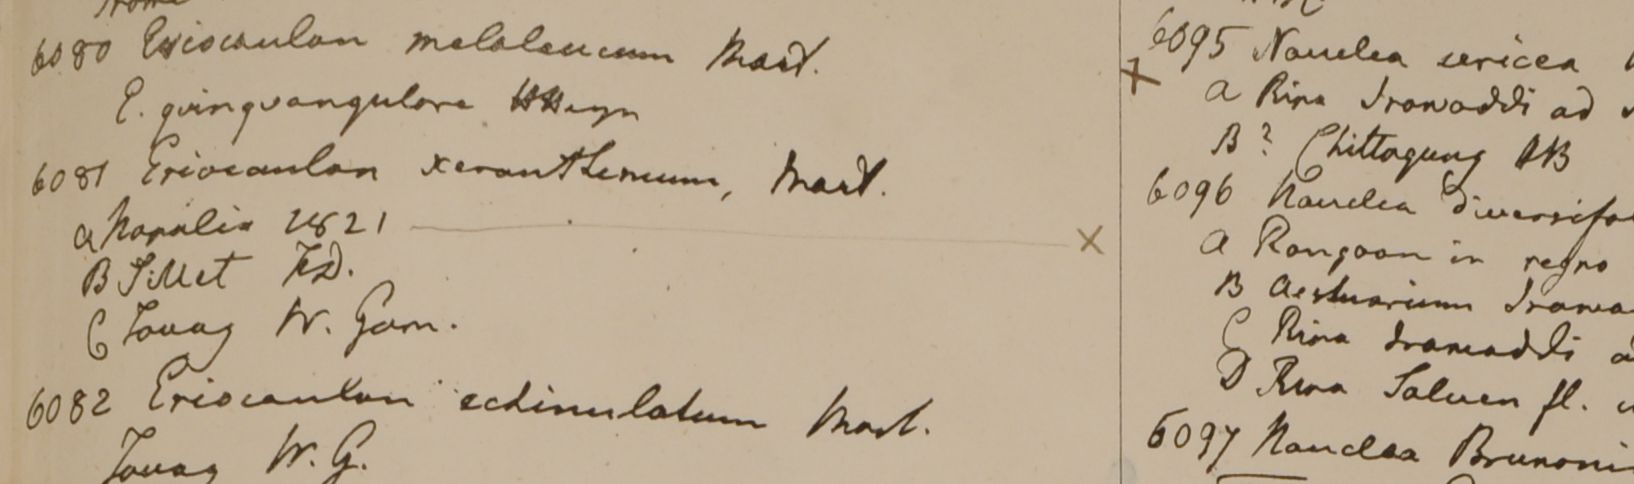 6080 Eriocaulon melaleucum Mart.
E. quinquangulare HHeyn
6081 Eriocaulon xeranthemum, Mart.
a Napalia 1821
B Sillet FD.
C Tavay W. Gom.
6082 Eriocaulon echinulatum Mart.
Tavay W. G.
6095 Nauclea sericea
a Ripa Irawaddi ad
B? Chittagung HB
6096 Nauclea diversifo
a Rangoon in regno
B Aestuarium Irawa
C Ripa Irawaddi
D Ripa Saluen fl.
6097 Nauclea Brunoni